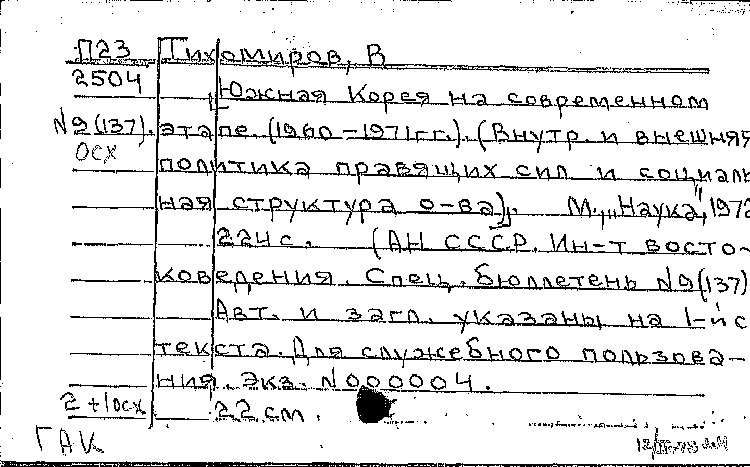 П23 Тихомиров, В
2504
Южная Корея на современном
N9(137). этапе. (1960-1971гг.). (Внутр. и внешняя
ОСХ
политика правящих сил и социаль
ная структура о-ва). М., „Наука", 1972
224с. (АН СССР. Ин-т восто-
коведения. Спец. бюллетень N9(137)
Авт. и загл. указаны на 1-й с
текста. Для служебного пользова-
ния. Экз. N000004.
2+1осх 22 см.
ГАК